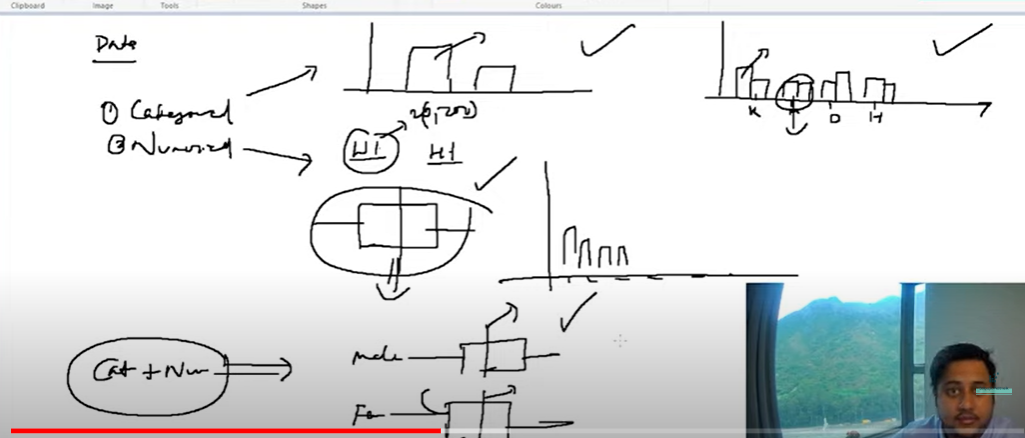 Clipboard Image Tools Shapes Colours
Data
① Categorical
② Numerical
H1 H1
K D H
Cat + Num
male
Fe